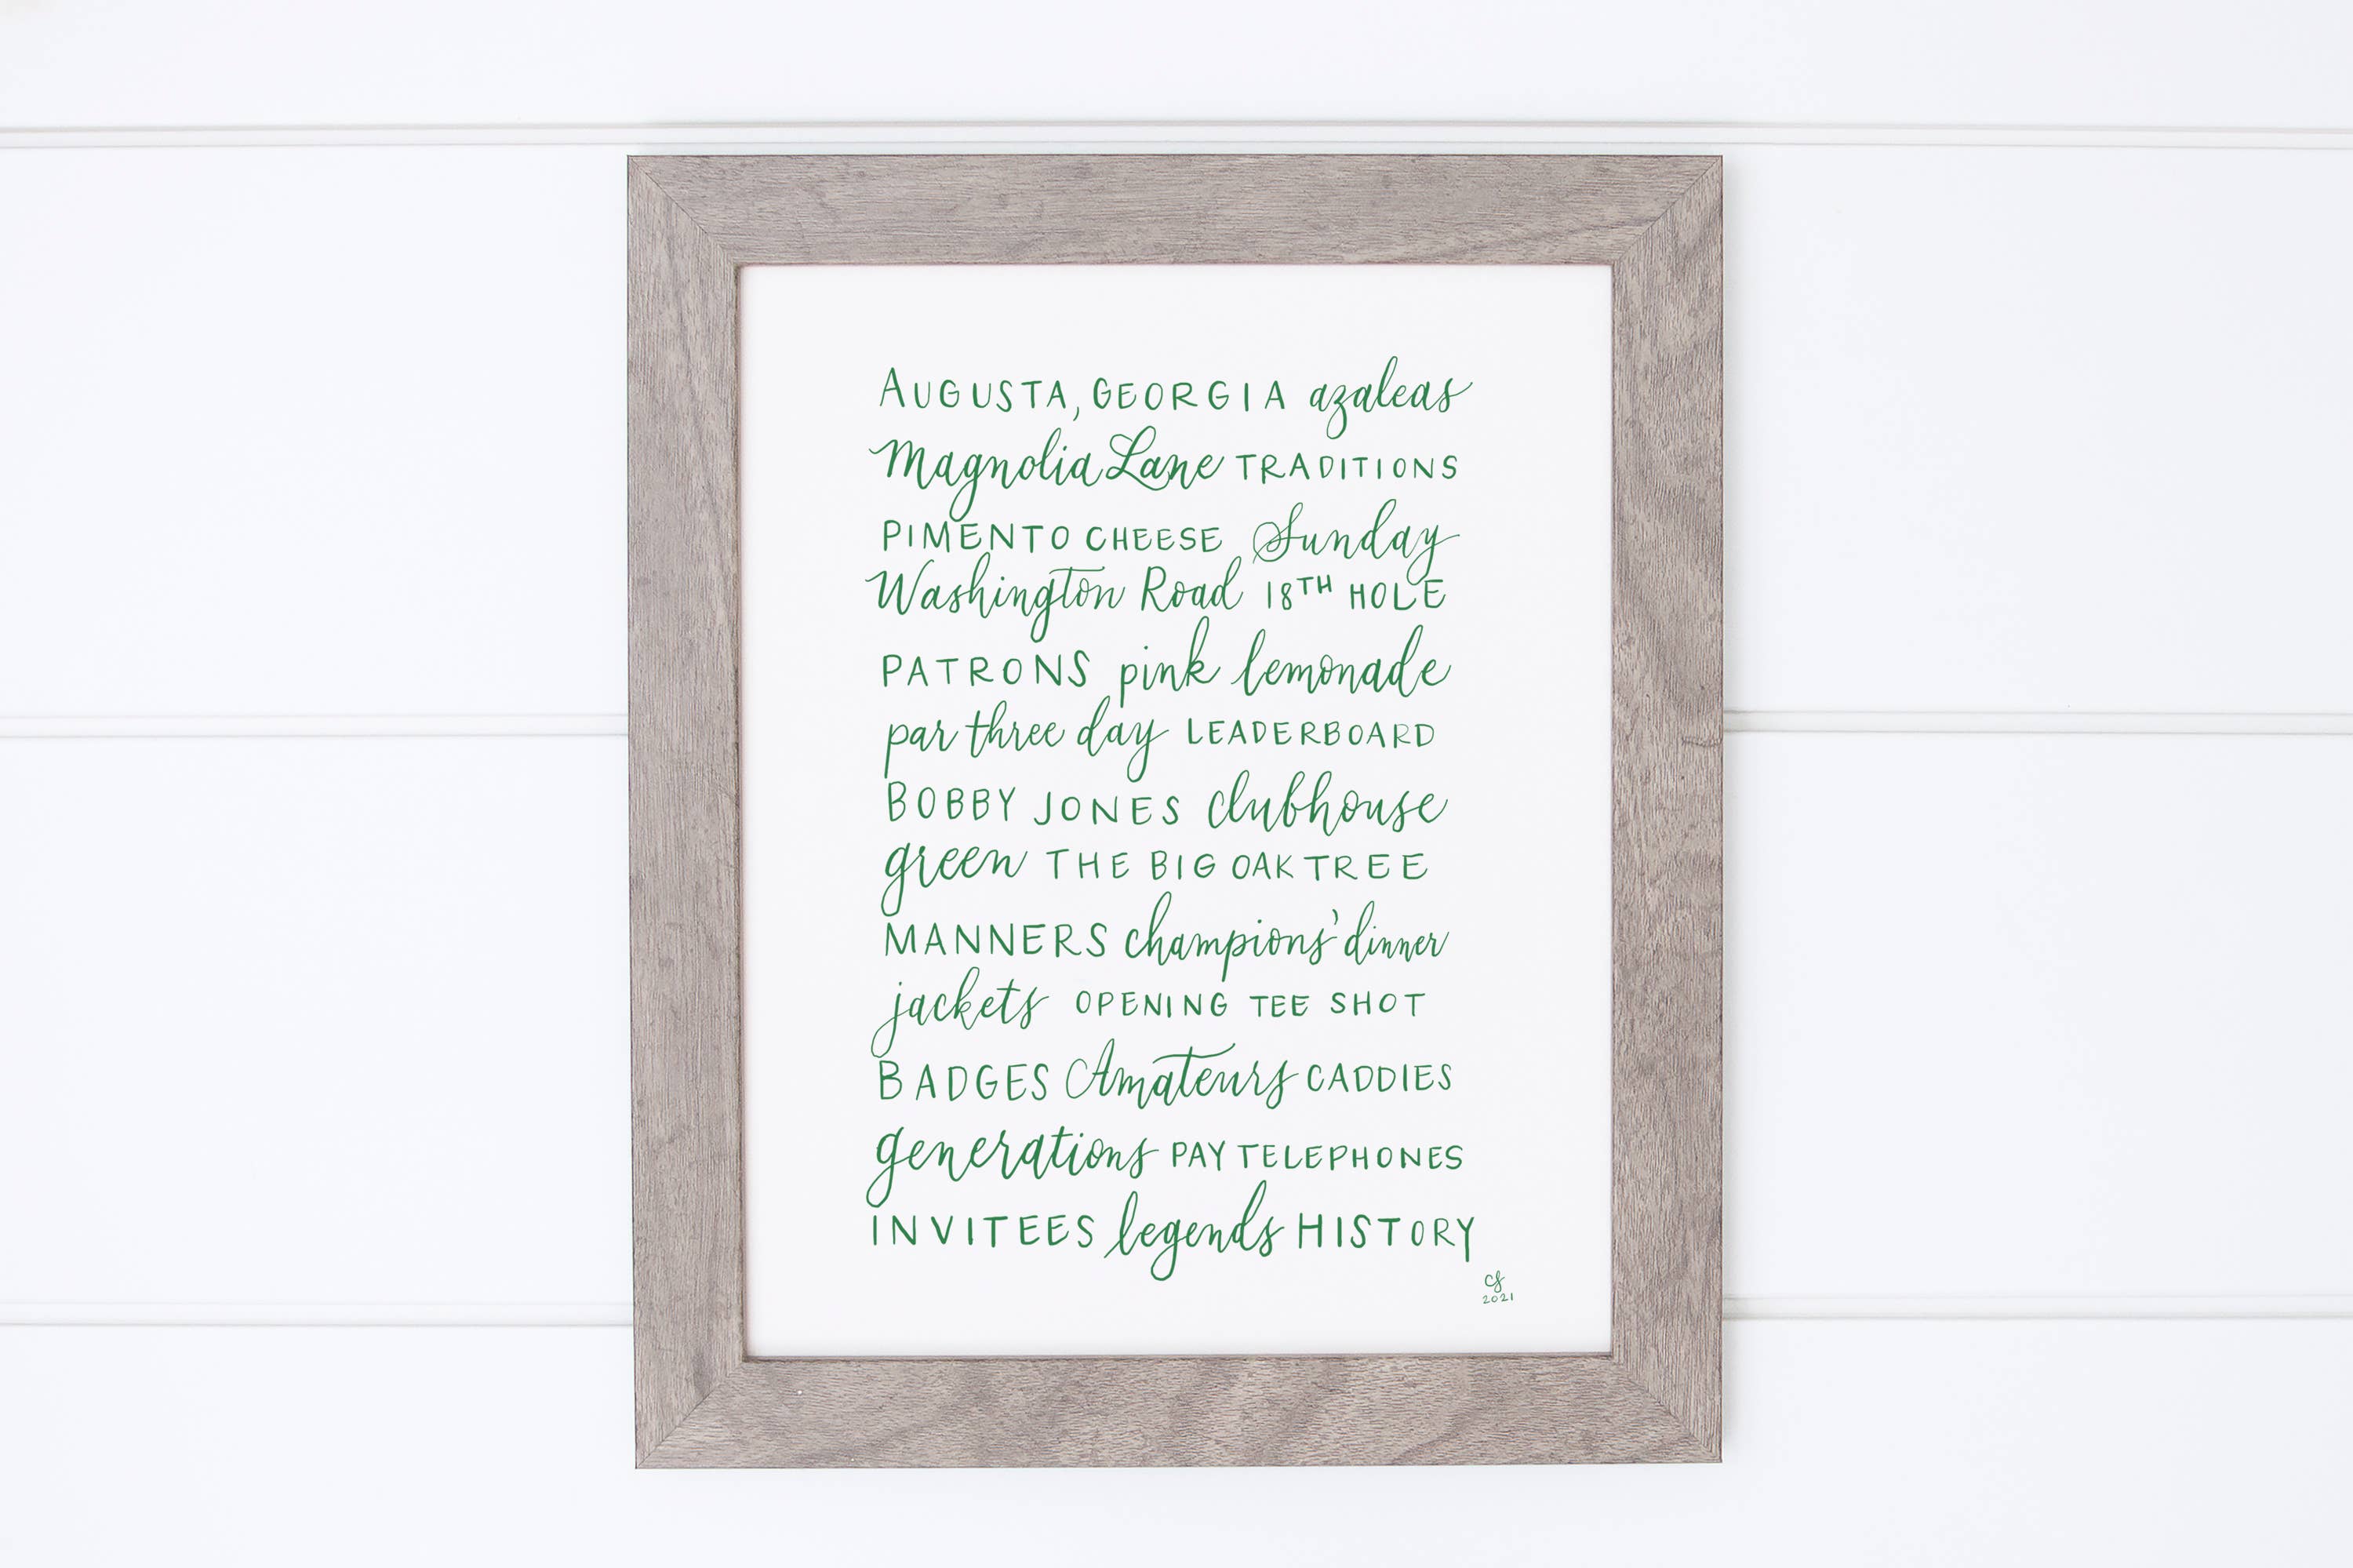 AUGUSTA, GEORGIA azaleas
Magnolia Lane TRADITIONS
PIMENTO CHEESE Sunday
Washington Road 18TH HOLE
PATRONS pink lemonade
par three day LEADERBOARD
BOBBY JONES clubhouse
green THE BIG OAK TREE
MANNERS champions' dinner
jackets OPENING TEE SHOT
BADGES Amateurs CADDIES
generations PAY TELEPHONES
INVITEES legends HISTORY
CS
2021